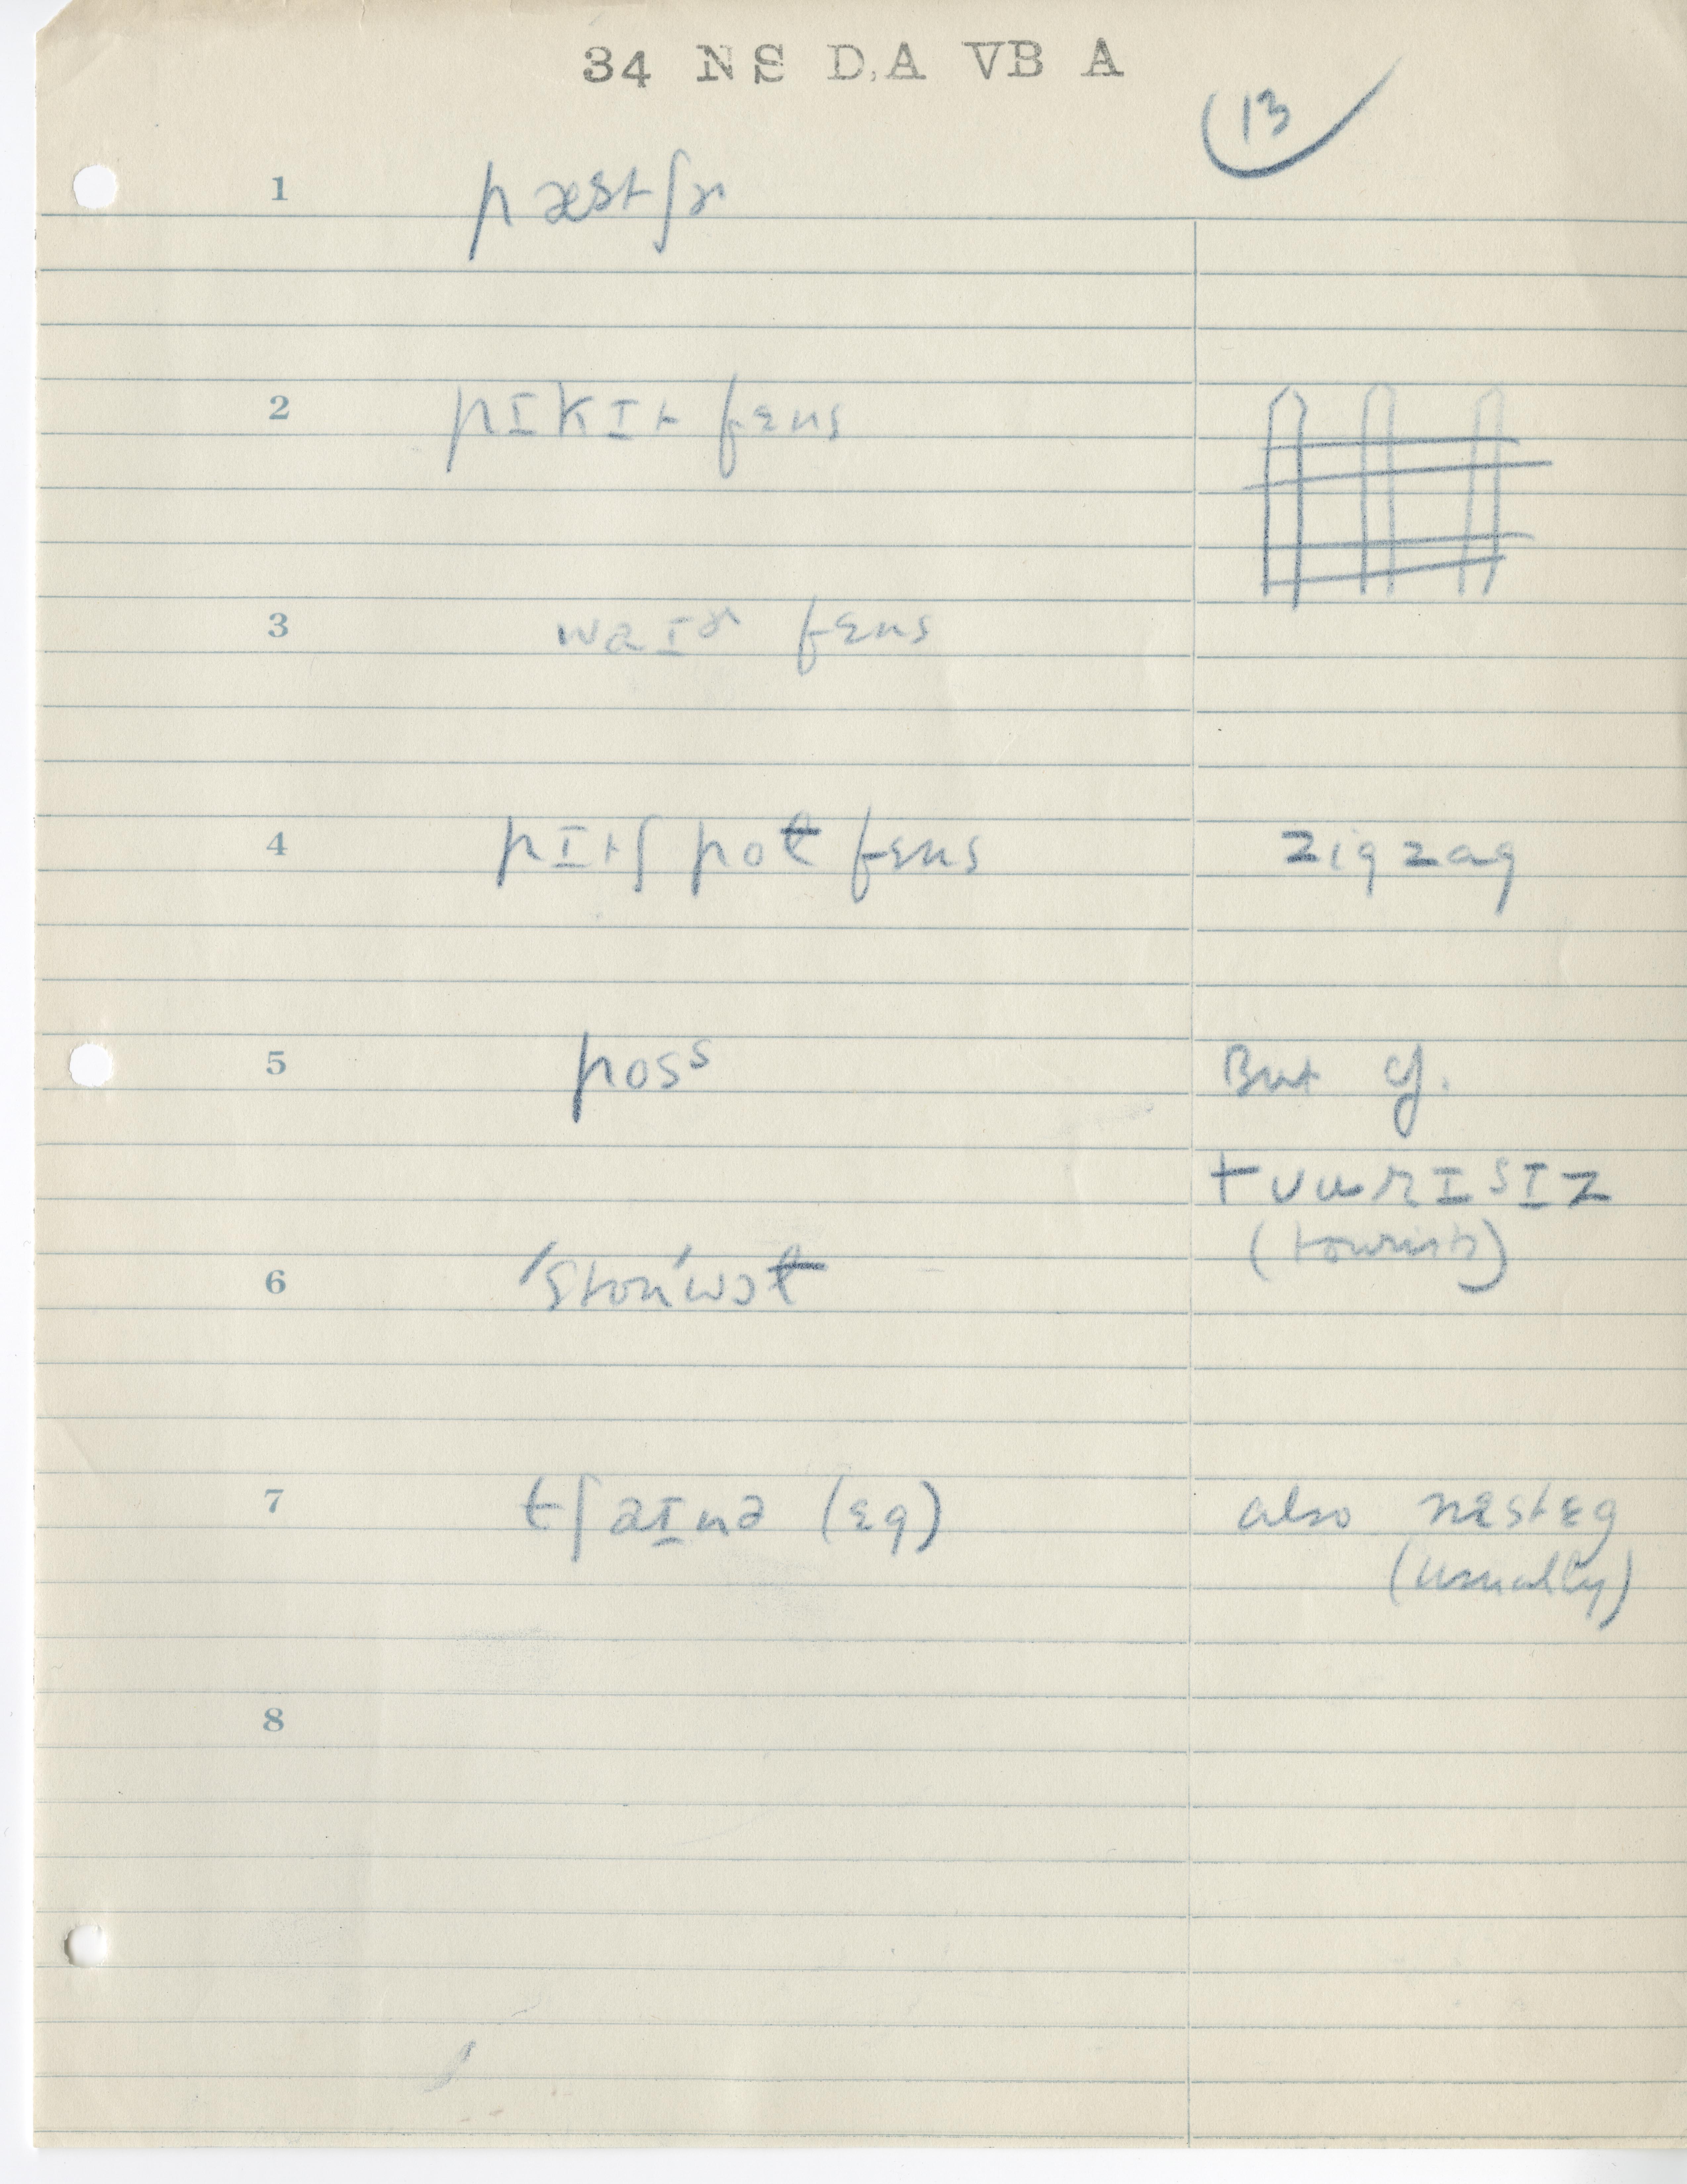 34 NS D.A VB A
13
1 pæstʃɚ
2 pɪkɪt fɛns
3 waɪɚ fɛns
4 pɪtʃ poɫ fɛns zigzag
5 posˢ But cf.
tuurɪsɪz
(tourists)
6 ˈstonˈwɔɫ
7 tʃaɪnə (ɛg) also nɛstɛg
(usually)
8